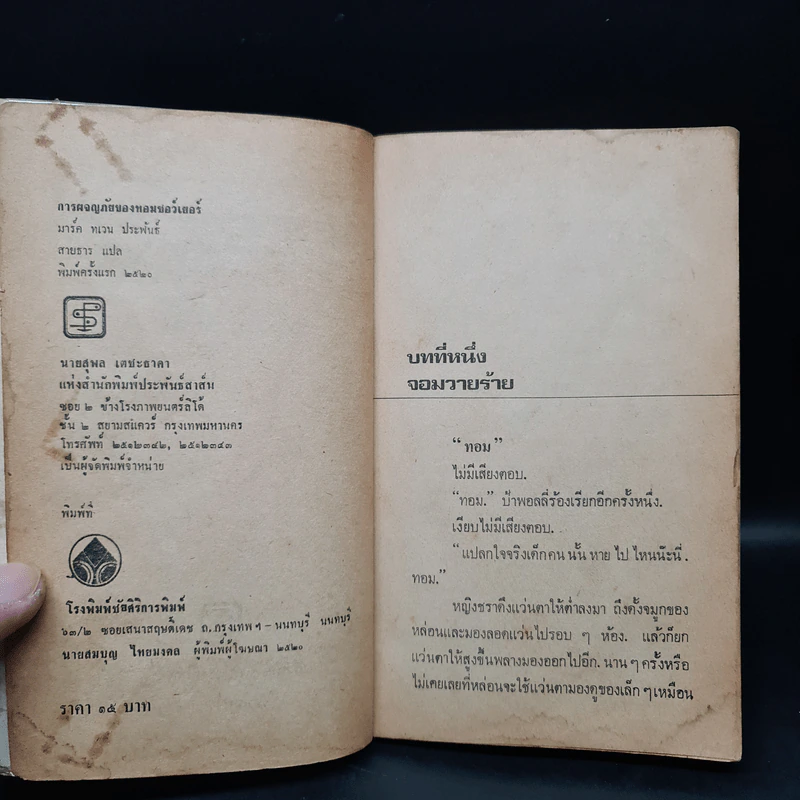 การผจญภัยของทอมซอว์เยอร์
มาร์ค ทเวน ประพันธ์
สายธาร แปล
พิมพ์ครั้งแรก ๒๕๒๐
นายสุพล เตชะธาดา
แห่งสำนักพิมพ์ประพันธ์สาส์น
ซอย ๒ ข้างโรงภาพยนตร์ลิโด้
ชั้น ๒ สยามสแควร์ กรุงเทพมหานคร
โทรศัพท์ ๒๕๑๒๓๔๒, ๒๕๑๒๓๔๓
เป็นผู้จัดพิมพ์จำหน่าย
พิมพ์ที่
โรงพิมพ์ชัยสิริการพิมพ์
๖๓/๒ ซอยเสนาสฤษดิ์เดช ถ.กรุงเทพฯ-นนทบุรี นนทบุรี
นายสมบุญ ไทยมงคล ผู้พิมพ์ผู้โฆษณา ๒๕๒๐
ราคา ๑๕ บาท
บทที่หนึ่ง
จอมวายร้าย
“ทอม”
ไม่มีเสียงตอบ.
“ทอม.” ป้าพอลลี่ร้องเรียกอีกครั้งหนึ่ง.
เงียบไม่มีเสียงตอบ.
“แปลกใจจริงเด็กคน นั้น หาย ไป ไหนน๊ะนี่.
ทอม.”
หญิงชราดึงแว่นตาให้ต่ำลงมา ถึงดั้งจมูกของ
หล่อนและมองลอดแว่นไปรอบ ๆ ห้อง. แล้วก็ยก
แว่นตาให้สูงขึ้นพลางมองออกไปอีก. นาน ๆ ครั้งหรือ
ไม่เคยเลยที่หล่อนจะใช้แว่นตามองดูของเล็ก ๆ เหมือน